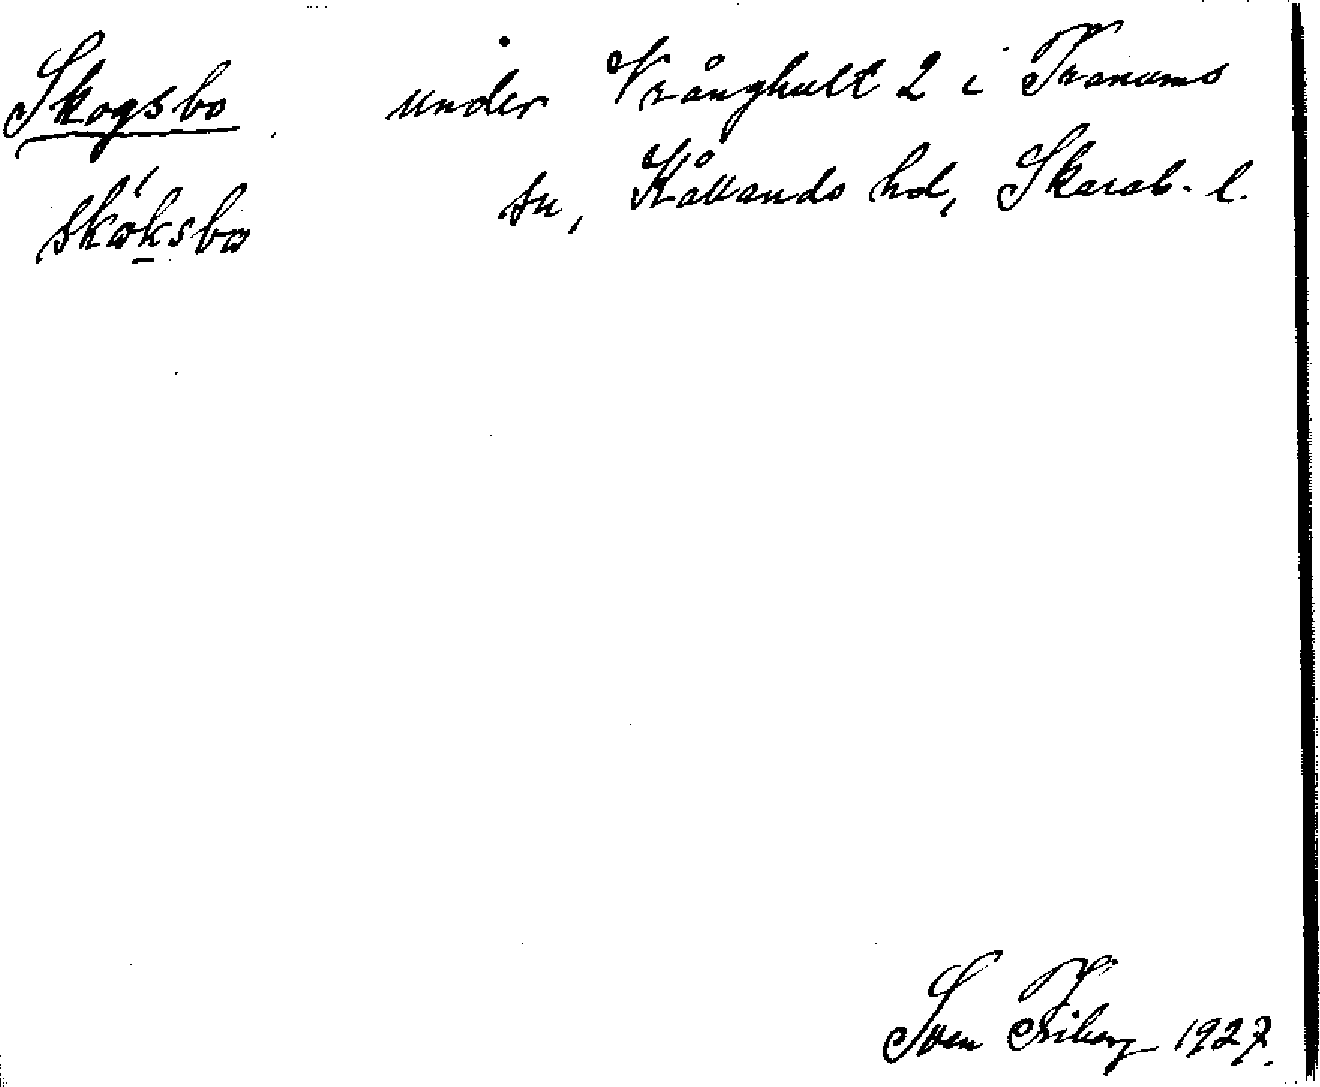 Skogsbo under Vrånghult 2 i Tranums
skóksbo sn, Kållands hd, Skarab. l.
Sven Friberg 1927.